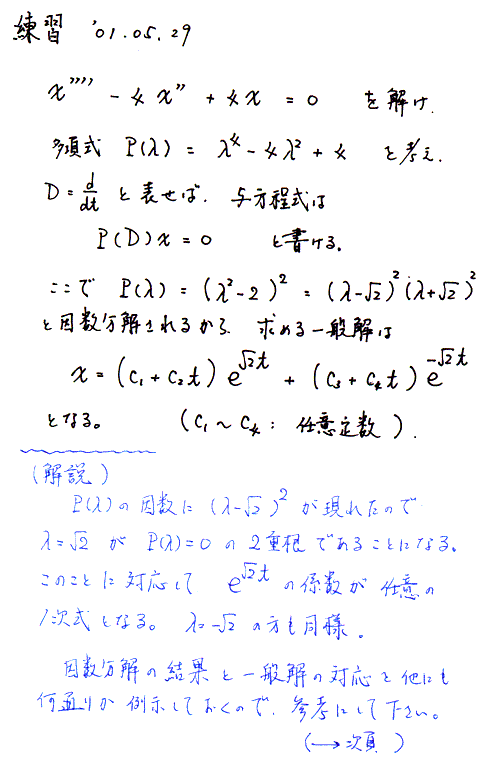 練習 '01.05.29
x'''' - 4x'' + 4x = 0 を解け.
多項式 P(λ) = λ⁴ - 4λ² + 4 を考え.
D = d/dt と表せば. 与方程式は
P(D)x = 0 と書ける。
ここで P(λ) = (λ²-2)² = (λ-√2)²(λ+√2)²
と因数分解されるから. 求める一般解は
x = (C₁ + C₂t) e^{√2t} + (C₃ + C₄t) e^{-√2t}
となる。 (C₁ ~ C₄ : 任意定数).
(解説)
P(λ)の因数に (λ-√2)² が現れたので
λ=√2 が P(λ)=0 の 2重根であることになる。
このことに対応して e^{√2t} の係数が任意の
1次式となる。 λ=-√2 の方も同様.
因数分解の結果と一般解の対応を他にも
何通りか例示しておくので. 参考にして下さい。
(→次頁)